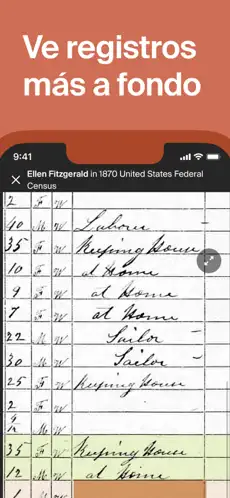 Ve registros
más a fondo
9:41
Ellen Fitzgerald in 1870 United States Federal
Census
2 F W
40 M W Laborer
35 F W Keeping House
10 F W at Home
9 F W at Home
7 F W at Home
22 M W Sailor
30 M W Sailor
25 F W Keeping House
2 F W
M W
35 F W Keeping House
12 M W at Home